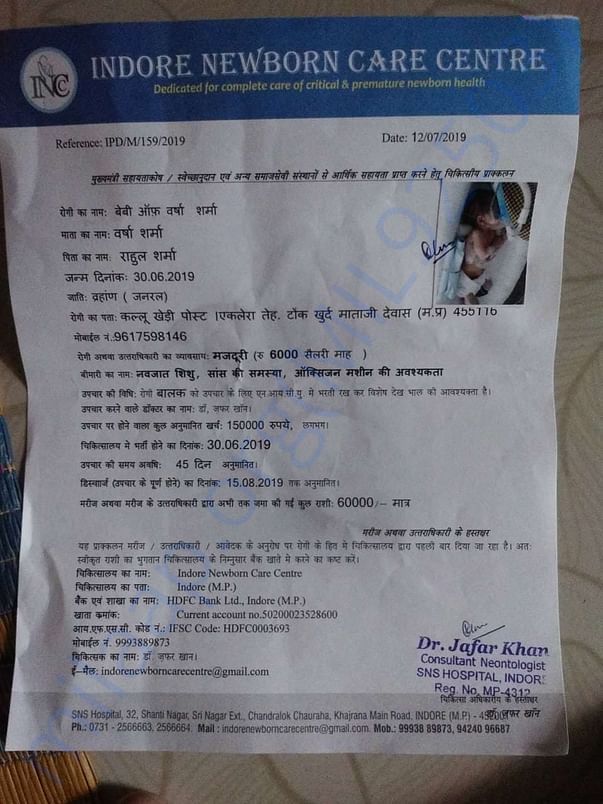 INCC
INDORE NEWBORN CARE CENTRE
Dedicated for complete care of critical & premature newborn health
Reference: IPD/M/159/2019
Date: 12/07/2019
मुख्यमंत्री सहायताकोष / स्वेच्छानुदान एवं अन्य समाजसेवी संस्थानों से आर्थिक सहायता प्राप्त करने हेतु चिकित्सीय प्राक्कलन
रोगी का नाम: बेबी ऑफ़ वर्षा शर्मा
माता का नाम: वर्षा शर्मा
पिता का नाम: राहुल शर्मा
जन्म दिनांक: 30.06.2019
जाति: व्रहांण ( जनरल)
रोगी का पता: कल्लू खेड़ी पोस्ट ।एकलेरा तेह. टोंक खुर्द माताजी देवास (म.प्र) 455116
मोबाईल नं.9617598146
रोगी अथवा उत्तराधिकारी का व्यवसाय: मजदूरी (रु 6000 सैलरी माह )
बीमारी का नाम: नवजात शिशु, सांस की समस्या, ऑक्सिजन मशीन की अवश्यकता
उपचार की विधि: रोगी बालक को उपचार के लिए एन.आय.सी.यू. में भरती रख कर विशेष देख भाल की आवश्यक्ता है।
उपचार करने वाले डॉक्टर का नाम: डॉ. ज़फर खॉन।
उपचार पर होने वाला कुल अनुमानित खर्च: 150000 रुपये, लगभग।
चिकित्सालय मे भर्ती होने का दिनांक: 30.06.2019
उपचार की समय अवधि: 45 दिन अनुमानित।
डिस्चार्ज (उपचार के पूर्ण होने) का दिनांक: 15.08.2019 तक अनुमानित।
मरीज अथवा मरीज के उत्तराधिकारी द्वारा अभी तक जमा की गई कुल राशी: 60000/– मात्र
मरीज अथवा उत्तराधिकारी के हस्ताक्षर
यह प्राक्कलन मरीज / उत्तराधिकारी / आवेदक के अनुरोध पर रोगी के हित मे चिकित्सालय द्वारा पहली बार दिया जा रहा है। अत:
स्वीकृत राशी का भुगतान चिकित्सालय के निम्नुसार बैंक खाते मे करने का कष्ट करें।
चिकित्सालय का नाम: Indore Newborn Care Centre
चिकित्सालय का पता: Indore (M.P.)
बैंक एवं शाखा का नाम: HDFC Bank Ltd., Indore (M.P.)
खाता क्रमांक: Current account no.50200023528600
आय.एफ.एस.सी. कोड नं.: IFSC Code: HDFC0003693
मोबाईल नं. 9993889873
चिकित्सक का नाम: डॉ. ज़फर खान।
ई–मैल: indorenewborncarecentre@gmail.com
Dr. Jafar Khan
Consultant Neontologist
SNS HOSPITAL, INDORE
Reg. No. MP-4312
चिकित्सा अधिकारीय के हस्ताक्षर
डॉ. ज़फर खॉन
SNS Hospital, 32, Shanti Nagar, Sri Nagar Ext., Chandralok Chauraha, Khajrana Main Road, INDORE (M.P.) -
Ph.: 0731 - 2566663, 2566664. Mail : indorenewborncarecentre@gmail.com. Mob.: 99938 89873, 94240 96687